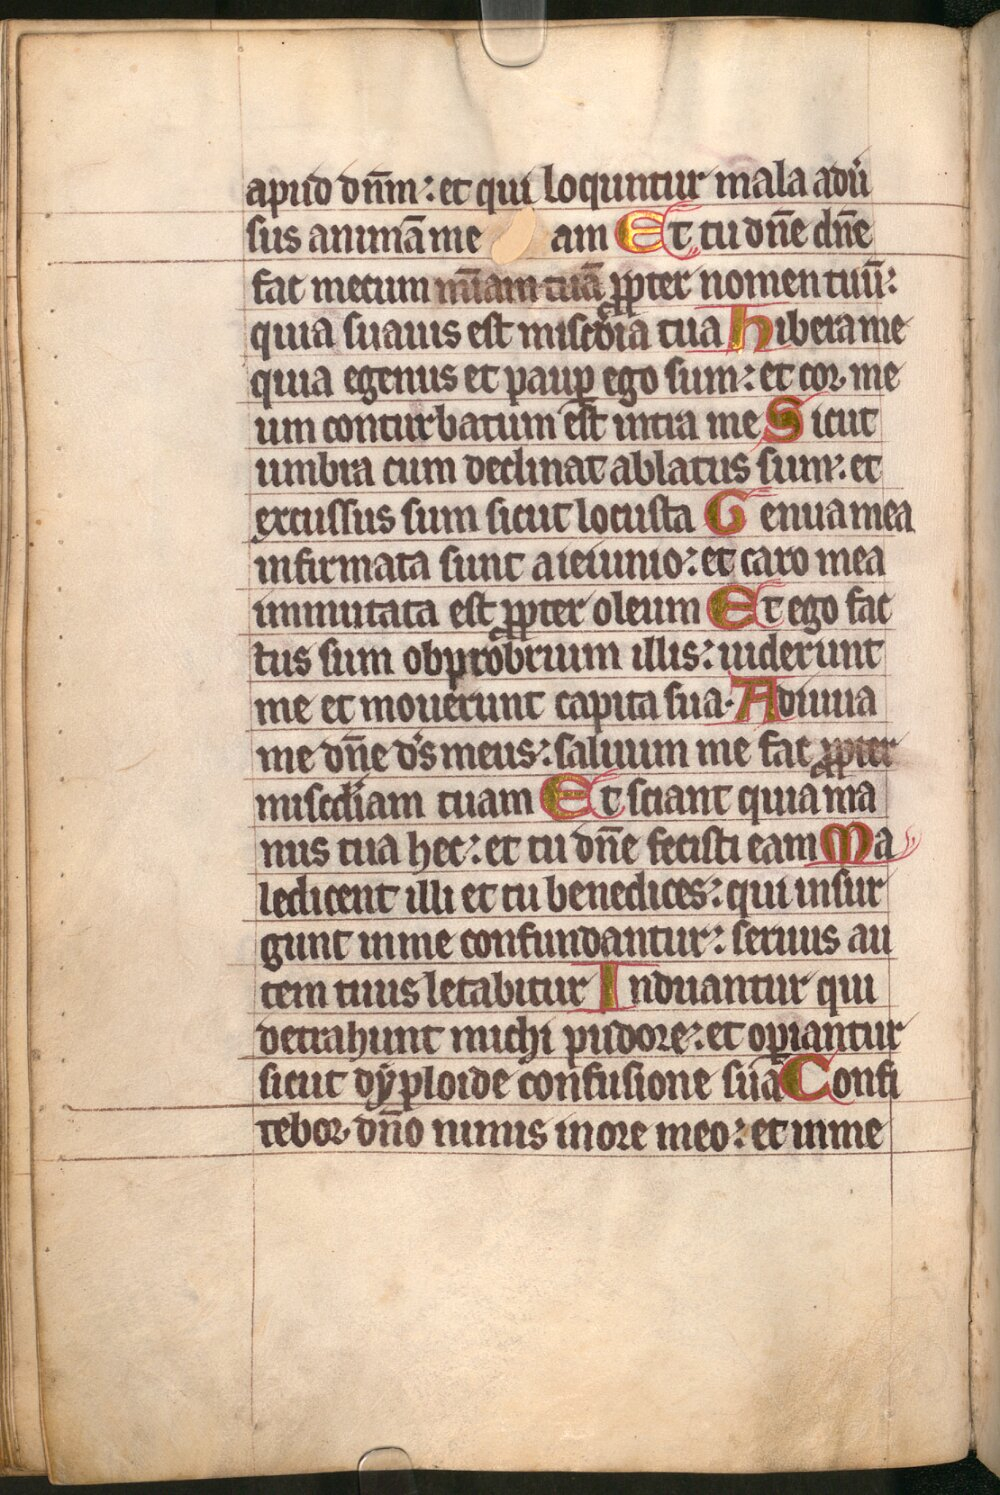 apud dn̄m: et qui loquntur mala adu͛
sus animā me am Et tu dn̄e dn̄e
fac mecum mi͞am tuā ꝓpter nomen tuū:
quia suauis est mis͞cdia tua hibera me
quia egenus et paup̱ ego sum: et cor me
um conturbatum ēst intra me Sicut
umbra cum declinat ablatus sum: et
excussus sum sicut locusta Genua mea
infirmata sunt a ieiunio: et caro mea
inmutata est ꝓpter oleum Et ego fac
tus sum obprobrium illis: uiderunt
me et mouerunt capita sua. Adiuua
me dn̄e ds̄ meus: saluum me fac ꝓpter
misc͞diam tuam Et sciant quia ma
nus tua hec: et tu dn̄e fecisti eam Ma
ledicent illi et tu benedices: qui insur
gunt in me confundantur: seruus au
tem tuus letabitur Induantur qui
detrahunt michi pudore: et op̱iantur
sicut dyploide confusione suā Confi
tebor dn̄o nimis in ore meo: et in me